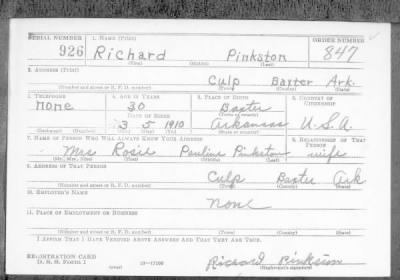 SERIAL NUMBER 1. NAME (Print) ORDER NUMBER
926 Richard Pinkston 847
(First) (Middle) (Last)
2. ADDRESS (Print)
Culp Baxter Ark.
(Number and street or R. F. D. number) (Town) (County) (State)
3. TELEPHONE 4. AGE IN YEARS 5. PLACE OF BIRTH 6. COUNTRY OF CITIZENSHIP
none 30 Baxter
DATE OF BIRTH (Town or county)
3 1910 Arkansas U.S.A.
(Exchange) (Number) (Mo.) (Day) (Yr.) (State or country)
7. NAME OF PERSON WHO WILL ALWAYS KNOW YOUR ADDRESS 8. RELATIONSHIP OF THAT PERSON
Mrs Rosie Pauline Pinkston wife
(Mr., Mrs., Miss) (First) (Middle) (Last)
9. ADDRESS OF THAT PERSON
Culp Baxter Ark
(Number and street or R. F. D. number) (Town) (County) (State)
10. EMPLOYER'S NAME
None
11. PLACE OF EMPLOYMENT OR BUSINESS
(Number and street or R. F. D. number) (Town) (County) (State)
I AFFIRM THAT I HAVE VERIFIED ABOVE ANSWERS AND THAT THEY ARE TRUE.
REGISTRATION CARD
D. S. S. FORM 1 16—17105 Richard Pinkston
(over) (Registrant's signature)